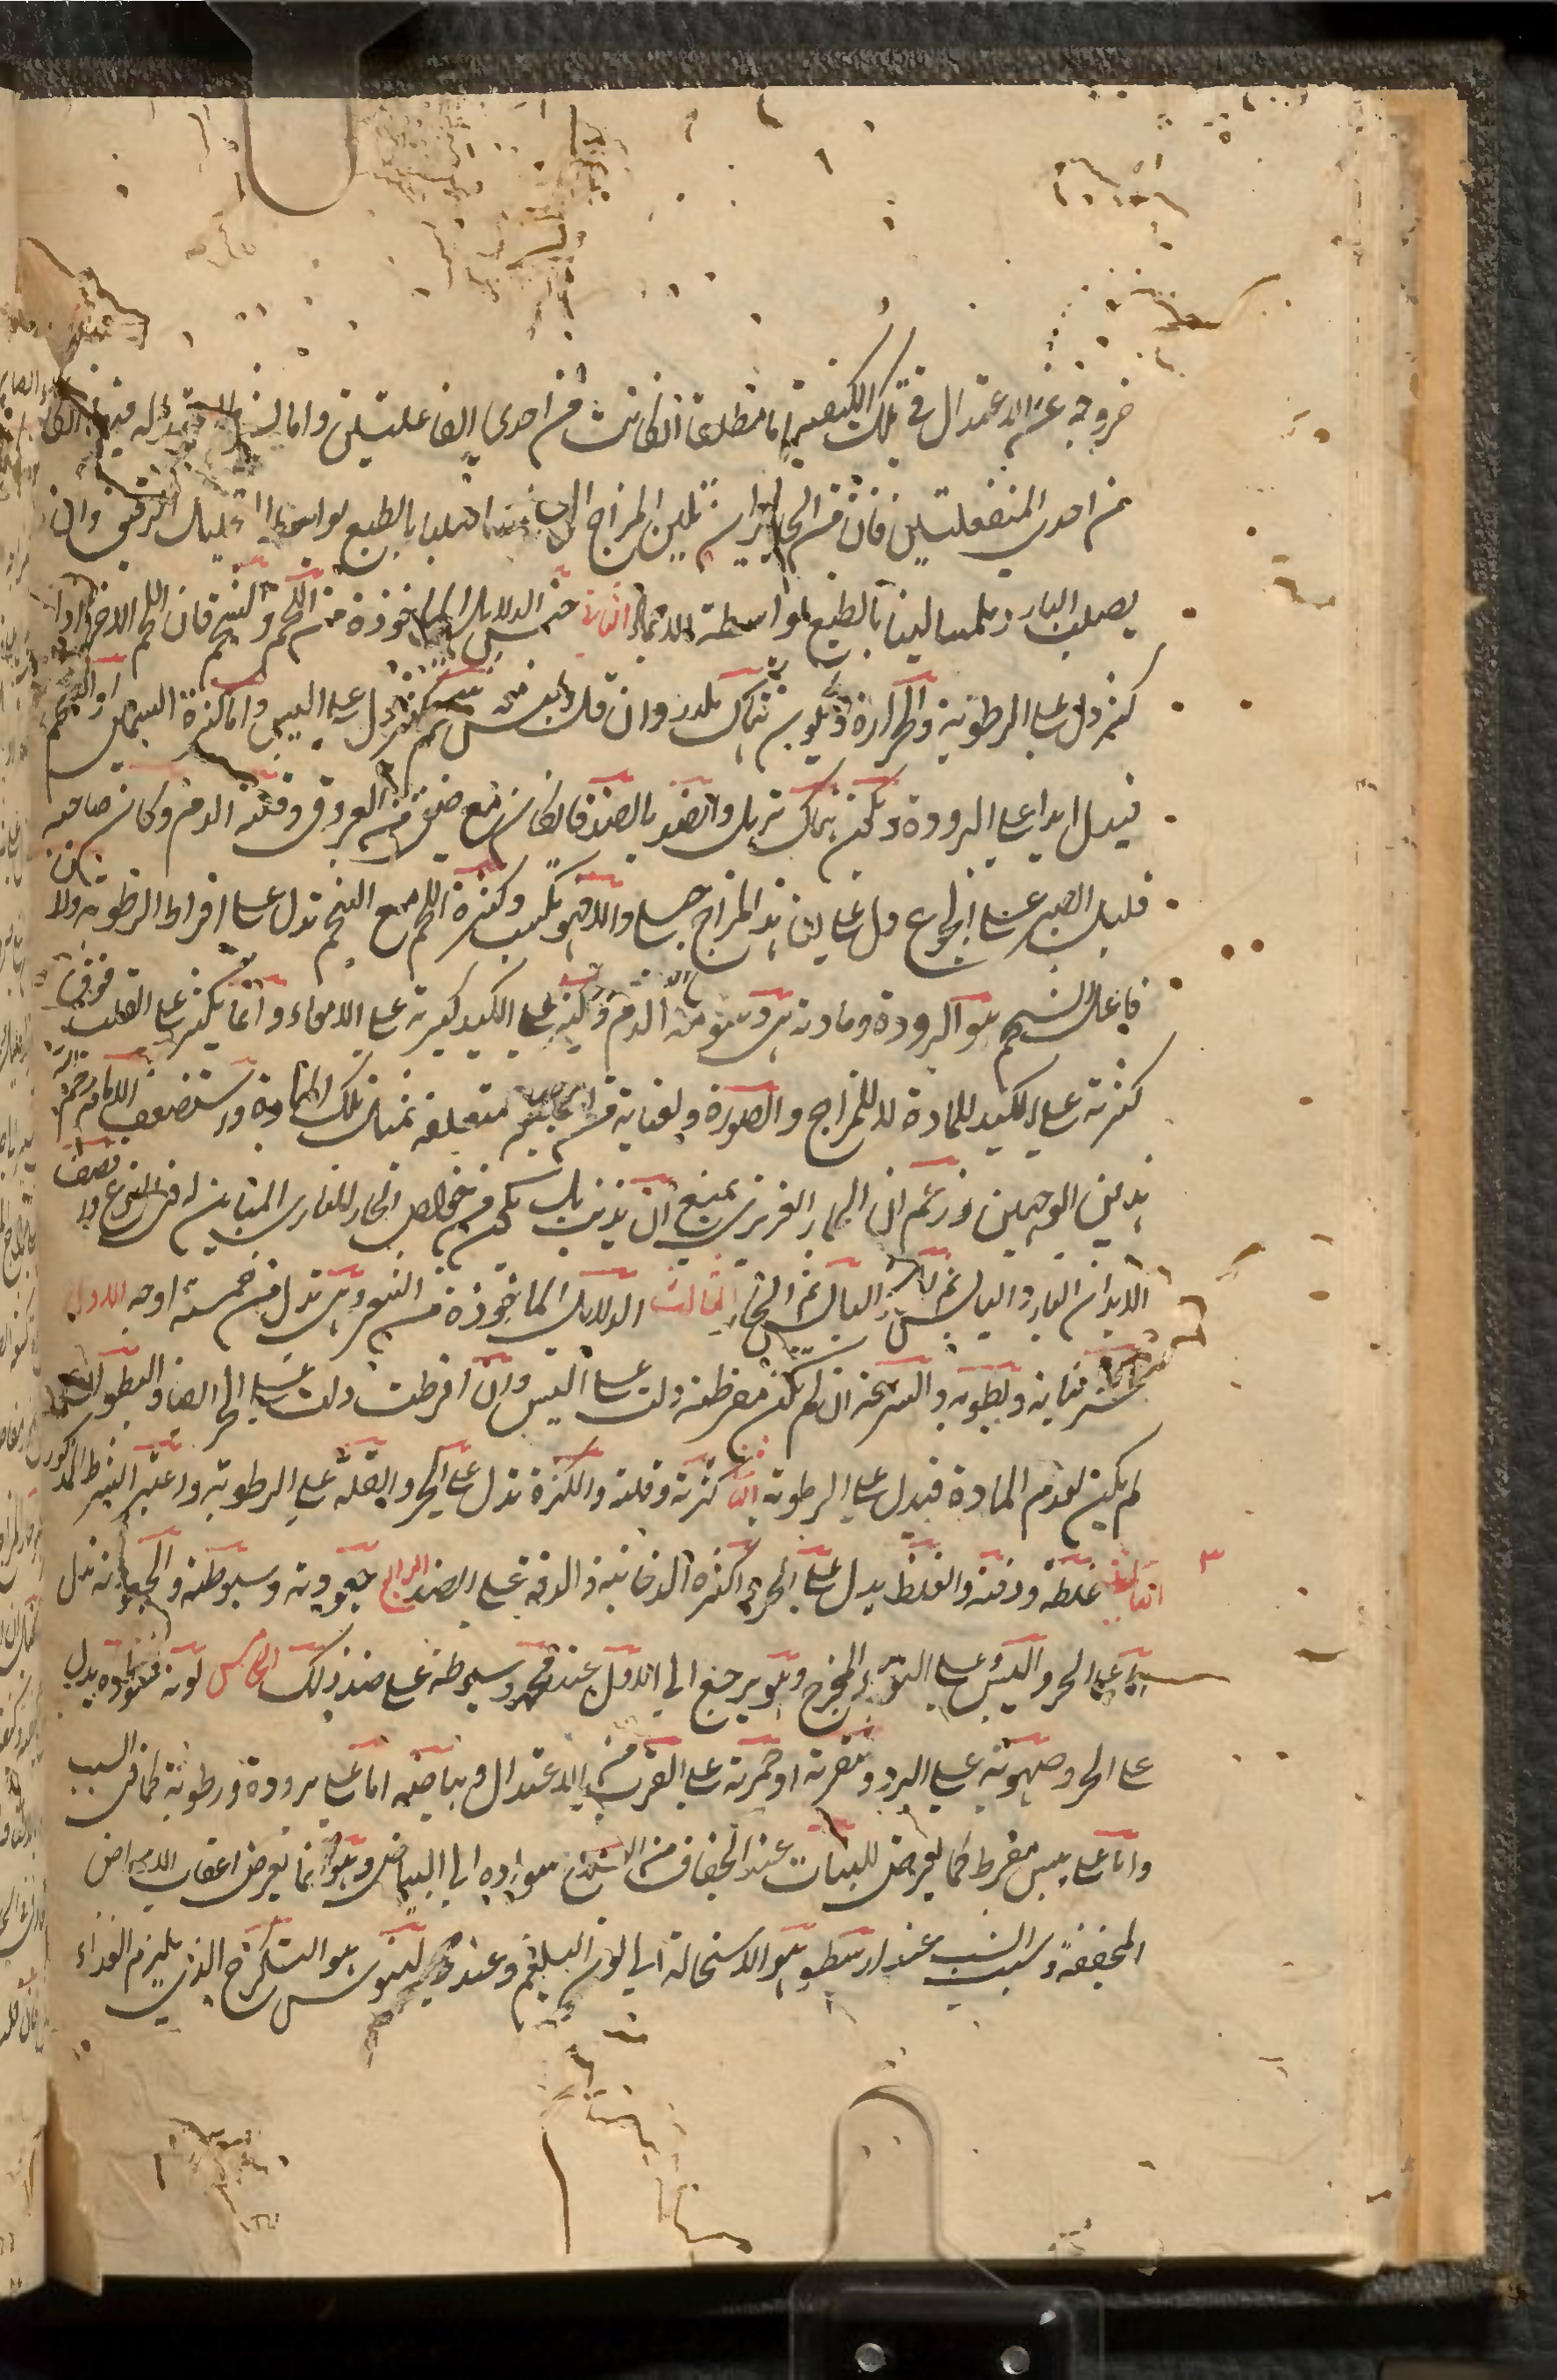 خروجه عن الاعتدال في تلك الكيفية اما مطلقا ان كانت من احدى الفاعلتين واما
من احدى المنفعلتين فان من الحار تلين المزاج بالطبع بواسطة وان
يصلب البارد ملمسا لينا بالطبع بواسطة الاجماد الثانية جنس الدلائل الماخوذة من اللحم والشحم فان اللحم الاحمر اذا
كثر دل على الرطوبة والحرارة ويكون هناك تلزز وان قل دل على اليبس واما كثرة السمين والشحم
فيدل ابدا على البرودة ويكون هناك ترهل والضد بالضد فان كان مع ضيق من العروق وقلة الدم وكان صاحبه
قليل الصبر على الجوع دل على ان هذا المزاج جبلي والا فهو مكتسب وكثرة اللحم مع الشحم تدل على افراط الرطوبة ولان
فاعل الشحم هو البرودة ومادته هي دسومة الدم وكثر على الكبد كثرته على الامعاء وانما يكثر على القلب فوق
كثرته على الكبد للمادة لا للمزاج والصورة ولعناية من متعلقة بمثل تلك المادة واستضعف الامام رحمه الله
هذين الوجهين وزعم ان الحار الغريزي يمنع ان يذيب بل يكون من خواص الحار الناري المباين له في النوع ولا نصف
الابدان البارد اليابس ثم اليابس ثم الحار الثالث الدلائل الماخوذة من الشعر وهي تدل من خمسة اوجه الاول
نباته وبطؤه والسرعة ان لم تكن مفرطة دلت على اليبس وان افرطت دلت على الحر ايضا والبطؤ ان
لم يكن لعدم المادة فيدل على الرطوبة الثاني كثرته وقلته والكثرة تدل على الحر والقلة على الرطوبة واعتبر الشرط المذكور
الثالث غلظه ودقته والغلظ يدل على الحر وكثرة الدخانية والدقة على الضد الرابع جعودته وسبوطته والجعودة تدل
اما على الحر واليبس او على التواء المخرج وهو يرجع الى الاول عند قوم وسبوطته على ضد ذلك الخامس لونه فسواده يدل
على الحر وصهوبته على البرد وشقرته او حمرته على القرب من الاعتدال وبياضه اما على برودة ورطوبة كما في الشيب
واما على يبس مفرط كما يعرض للنبات عند الجفاف من الانسلاخ سواده الى البياض وهو انما يعرض اعقاب الامراض
المجففة وسبب الشيب عند ارسطو هو الاستحالة الى لون البلغم وعند جالينوس هو التكرج الذي يلزم الغذاء